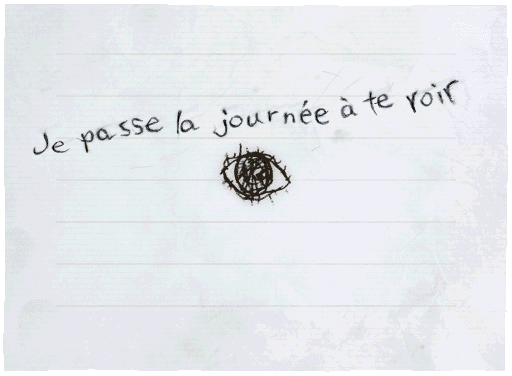 Je passe la journée à te roir